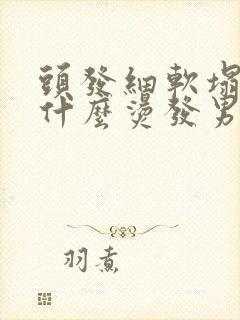 頭發細軟塌
什麼燙發男
羽煮